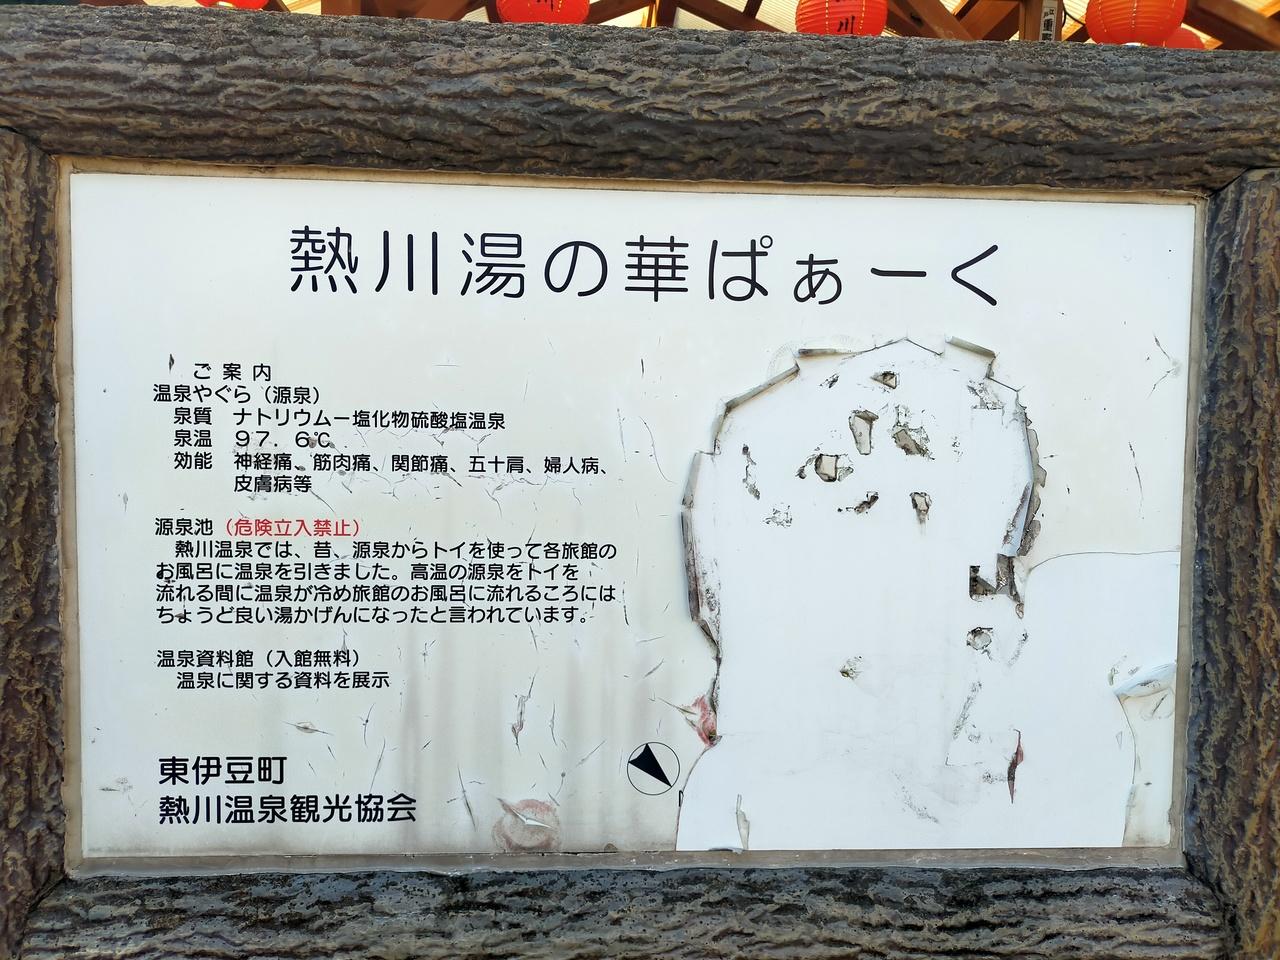 川
川
熱川湯の華ぱぁーく
ご案内
温泉やぐら（源泉）
泉質 ナトリウムー塩化物硫酸塩温泉
泉温 ９７．６℃
効能 神経痛、筋肉痛、関節痛、五十肩、婦人病、
皮膚病等
源泉池（危険立入禁止）
熱川温泉では、昔、源泉からトイを使って各旅館の
お風呂に温泉を引きました。高温の源泉をトイを
流れる間に温泉が冷め旅館のお風呂に流れるころには
ちょうど良い湯かげんになったと言われています。
温泉資料館（入館無料）
温泉に関する資料を展示
東伊豆町
熱川温泉観光協会